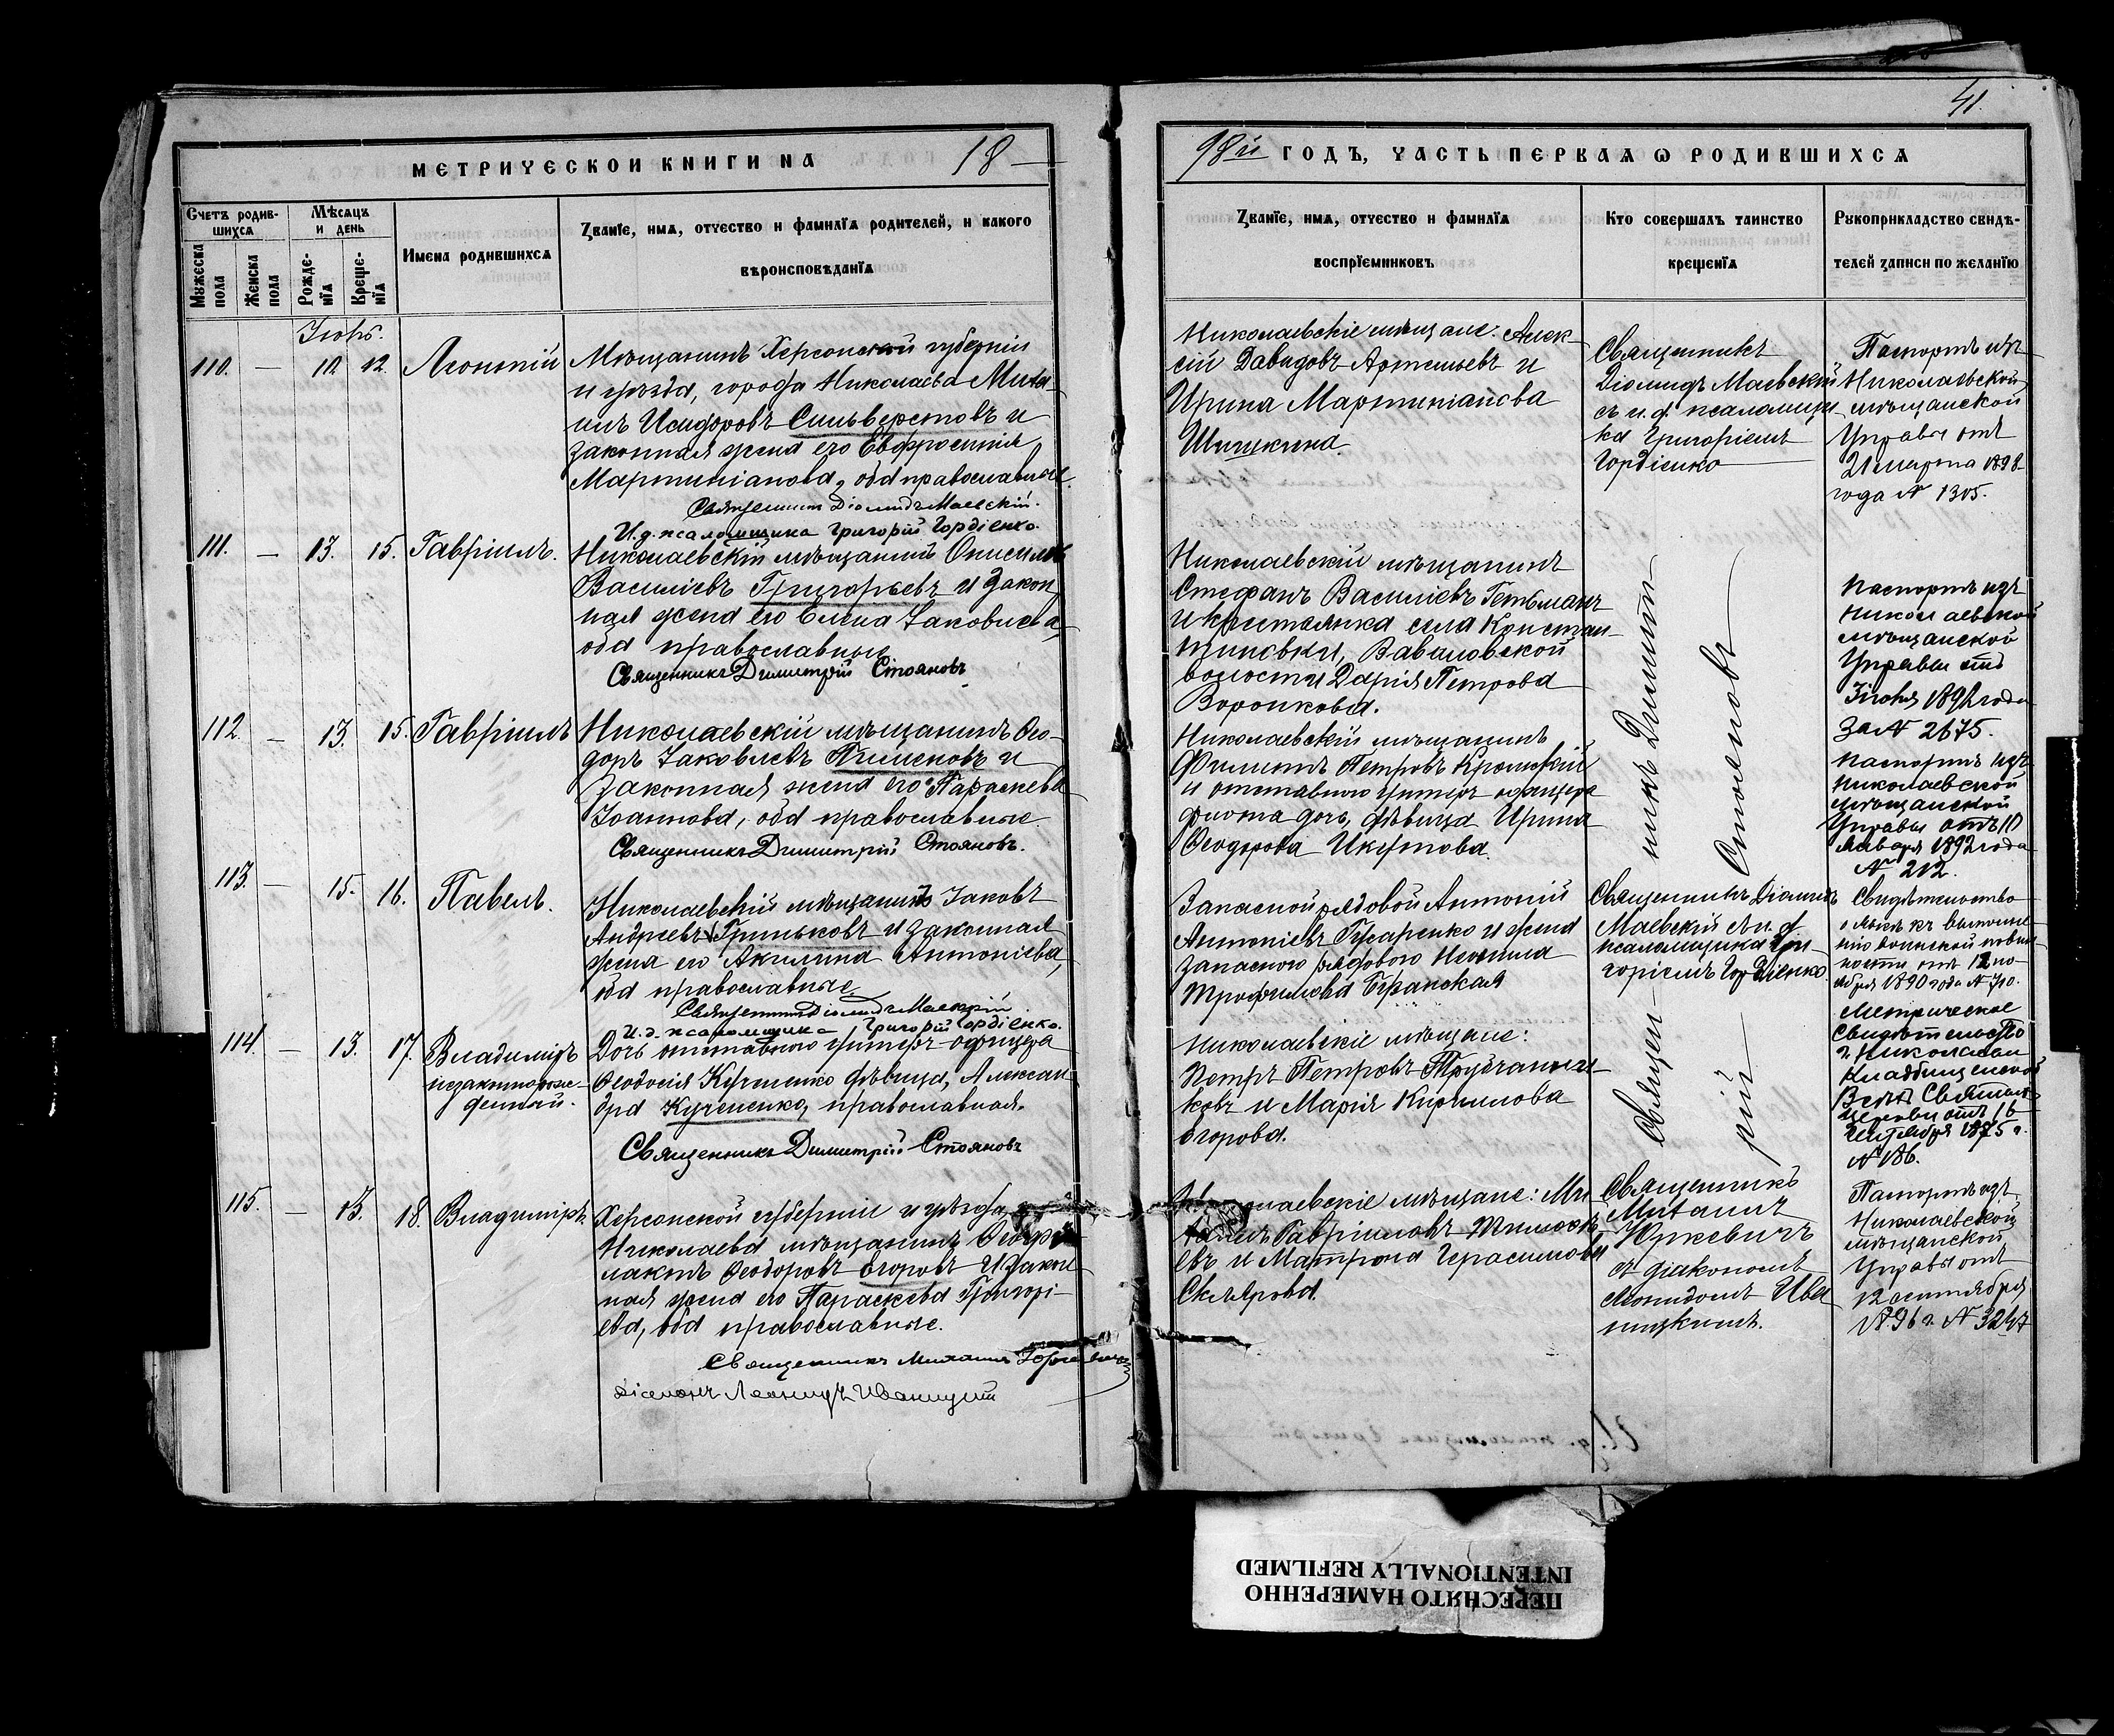 41.
МЕТРИЧЕСКОЙ КНИГИ НА 18
98й ГОДЪ, ЧАСТЬ ПЕРВАЯ Ѡ РОДИВШИХСЯ
Счетъ родив-
шихся
Мужеска пола
Женска пола
Мѣсяцъ
и день
Рожде-
нїя
Креще-
нїя
Имена родившихся
Званїе, имя, отчество и фамилїя родителей, и какого
вѣроисповѣданїя
Званїе, имя, отчество и фамилїя
воспрїемниковъ
Кто совершалъ таинство
крещенїя
Рукоприкладство свидѣ-
телей записи по желанїю
110. — 12 Леонтій
Мѣщанинъ Херсонской губерніи
и уѣзда, города Николаева Миха-
илъ Исидоровъ Сильверстовъ и
законная жена его Евфросинія
Мартиніанова, оба православные.
Священникъ Діомидъ Маевскій.
И.д. псаломщика Григорій Гордіенко.
Николаевскіе мѣщане: Алек-
сій Давидовъ Артемьевъ и
Ирина Мартиніанова
Шишкина.
Священникъ
Діомидъ Маевскій
съ и.д. псаломщи-
ка Григоріемъ
Гордіенко
Паспортъ изъ
Николаевской
мѣщанской
Управы отъ
21 марта 1898
года № 1305.
111. — 13. 15. Гавріилъ.
Николаевскій мѣщанинъ
Василіевъ Григорьевъ и закон
ная жена его Елена Іаковлева,
оба православные
Священникъ Димитрій Стояновъ
Николаевскій мѣщанинъ
Стефанъ Василіевъ Гетьманъ
и крестьянка села Констан-
тиновки, Вавиловской
волости Дарія Петрова
Воронкова.
Священникъ Димит
рій Стояновъ
Паспортъ изъ
Николаевской
мѣщанской
Управы отъ
1892 года
за № 2675.
112. — 13. 15. Гавріилъ
Николаевскій мѣщанинъ Ѳео-
доръ Іаковлевъ Пименовъ и
законная жена его Параскева
Іоаннова, оба православные
Священникъ Димитрій Стояновъ.
Николаевскій мѣщанинъ
Филиппъ Петровъ
и отставного унтеръ-офицера
флота дочь, дѣвица Ирина
Ѳеодорова Икутова.
Паспортъ изъ
Николаевской
мѣщанской
Управы отъ 10
января 1892 года
№ 212.
113. — 15. 16. Павелъ.
Николаевскій мѣщанинъ Іаковъ
Андреевъ Гриньковъ и законная
жена его Акилина Антоніева,
оба православные
Священникъ Діомидъ Маевскій
И.д. псаломщика Григорій Гордіенко.
Запасной рядовой Антоній
Антоніевъ Гусаренко и жена
запасного рядового Неонила
Трофимова
Священникъ Діомидъ
Маевскій съ и.д.
псаломщика Гри-
горіемъ Гордіенко.
Свидѣтельство
о явкѣ къ выполне-
нію воинской повин-
ности отъ 12 но-
ября 1890 года
114. — 13. 17. Владиміръ
незаконнорож-
денный.
Дочь отставного унтеръ-офицера
Ѳеодосія Кучменко дѣвица, Алексан-
дра Кучменко, православная.
Священникъ Димитрій Стояновъ
Николаевскіе мѣщане:
Петръ Петровъ
ковъ и Марія Кириллова
Егорова.
Метрическое
Свидѣтельство
г. Николаева
Кладбищенской
Всѣхъ Святыхъ
церкви отъ 16
1875 г.
№ 186.
115. — 13. 18. Владиміръ.
Херсонской губерніи и уѣзда, г.
Николаева мѣщанинъ Ѳеофи
лактъ Ѳеодоровъ Егоровъ и закон
ная жена его Параскева Григорі-
ева, оба православные.
Священникъ Михаилъ Юркевичъ
діаконъ Леонидъ Иваницкій
Николаевскіе мѣщане: Ми-
хаилъ Гавриловъ Тимоѳе
евъ и Матрона Герасимова
Склярова.
Священникъ
Михаилъ
Юркевичъ
съ діакономъ
Леонидомъ Ива
ницкимъ.
Паспортъ изъ
Николаевской
мѣщанской
Управы отъ
1896 г. № 3247
ПЕРЕСНЯТО НАМЕРЕННО
INTENTIONALLY REFILMED